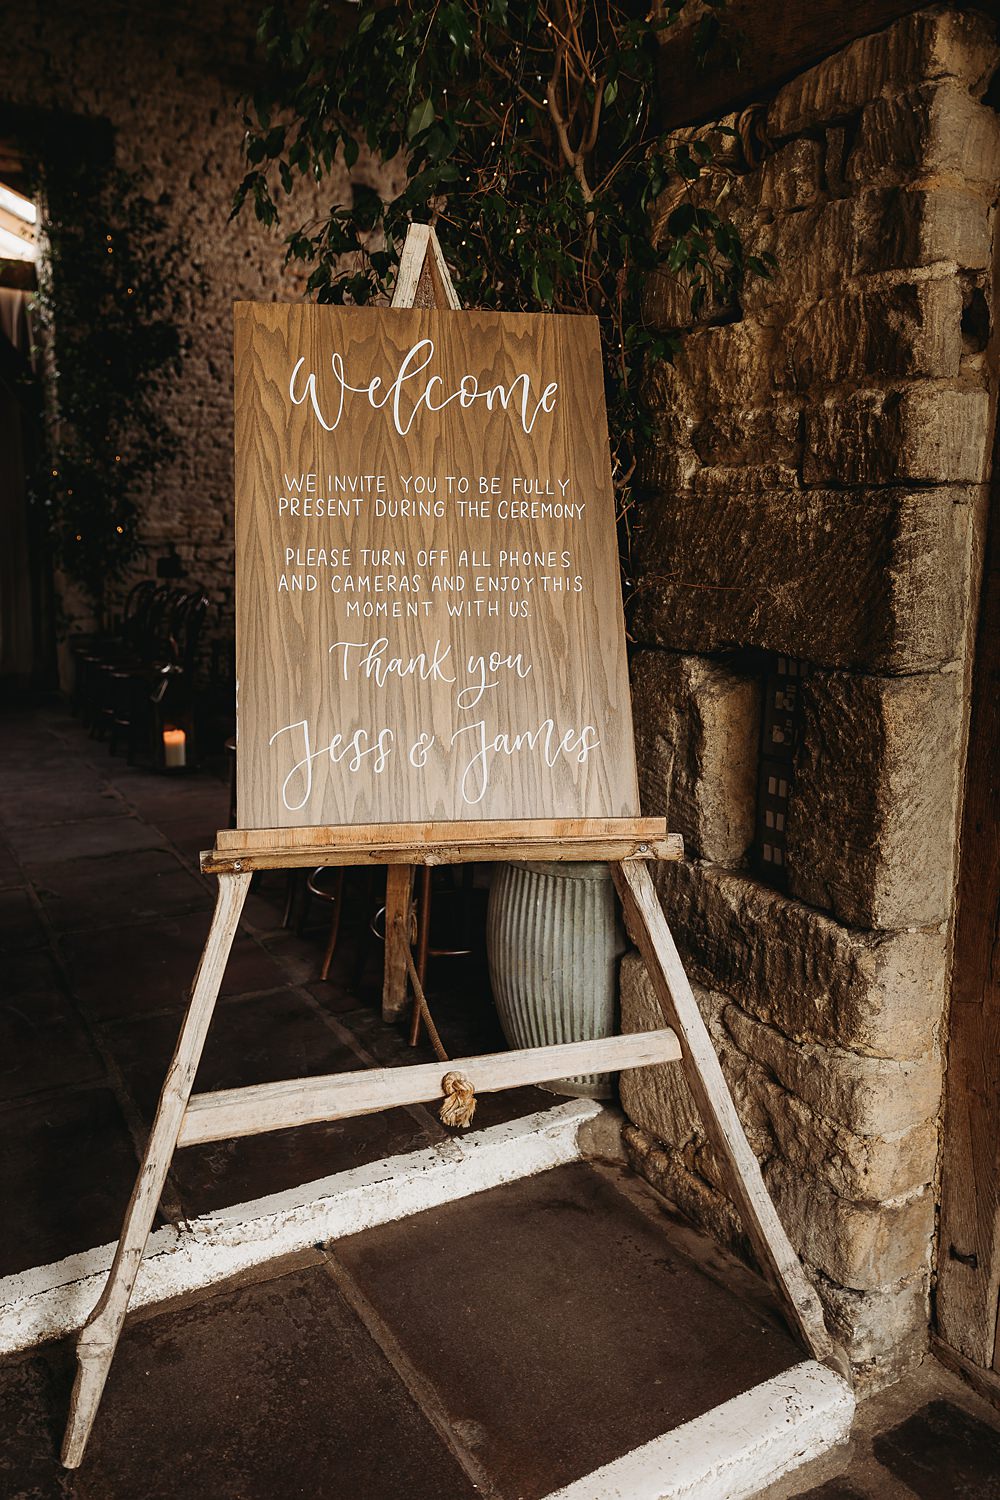 Welcome
WE INVITE YOU TO BE FULLY
PRESENT DURING THE CEREMONY
PLEASE TURN OFF ALL PHONES
AND CAMERAS AND ENJOY THIS
MOMENT WITH US.
Thank you
Jess & James